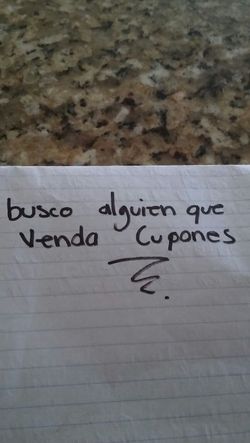 busco alguien que
Venda Cupones